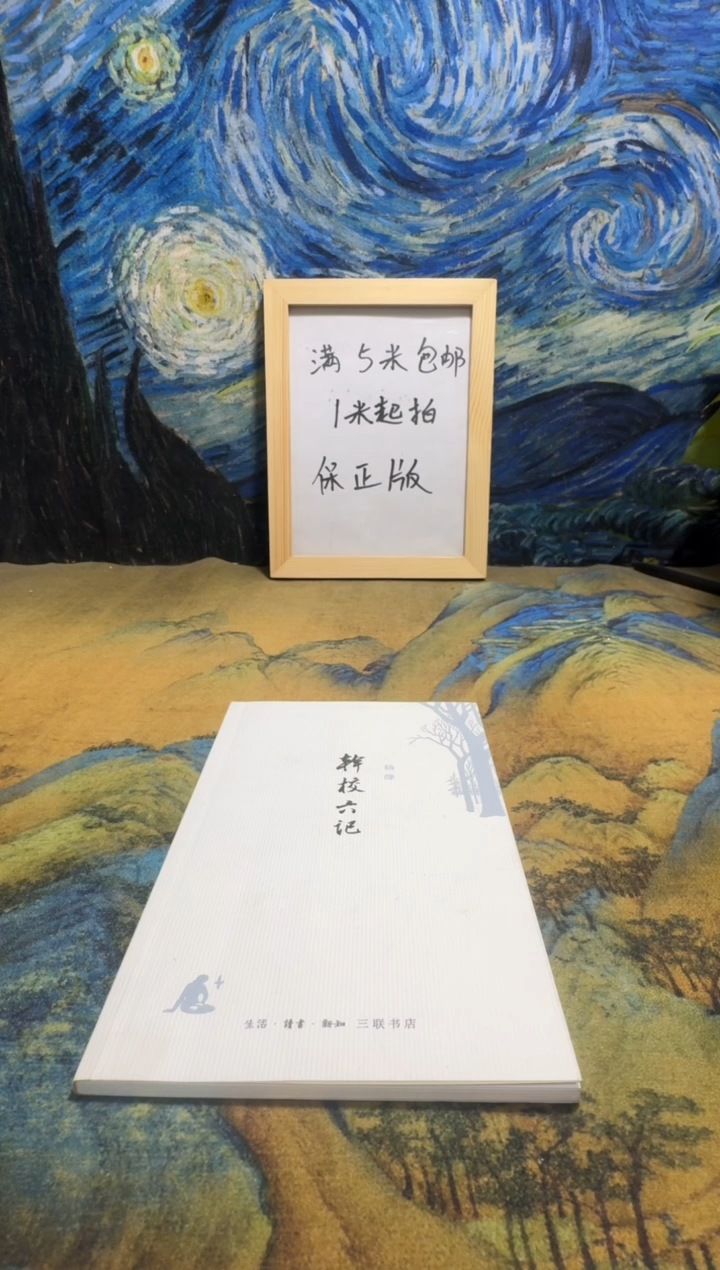 满5米包邮
1米起拍
保正版
幹校六记
杨绛
生活·讀書·新知 三联书店